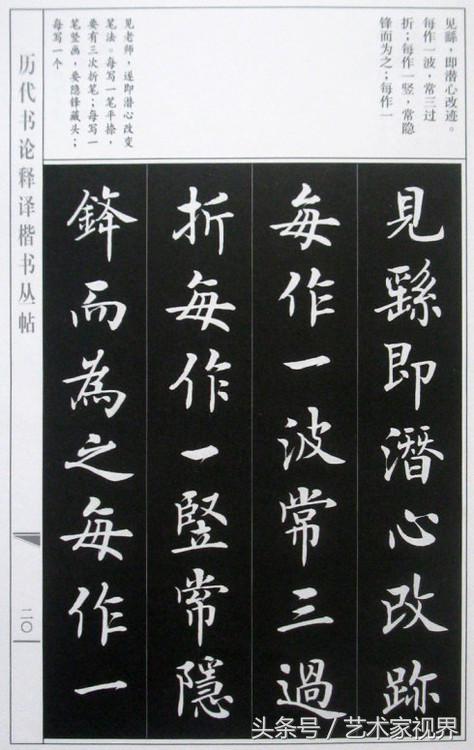 见繇，即潜心改迹。
每作一波，常三过
折；每作一竖，常隐
锋而为之；每作一
见老师，遂即潜心改变
笔法。每写一笔平捺，
要有三次折笔；每写一
笔竖画，要隐锋藏头；
每写一个
見繇即潛心改跡
每作一波常三過
折每作一竪常隱
鋒而為之每作一
历代书论释译楷书丛帖
二〇
头条号／艺术家视界